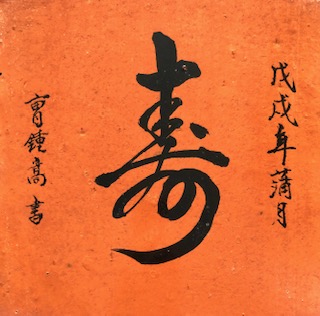 戊戌年蒲月
寿
鍾高書